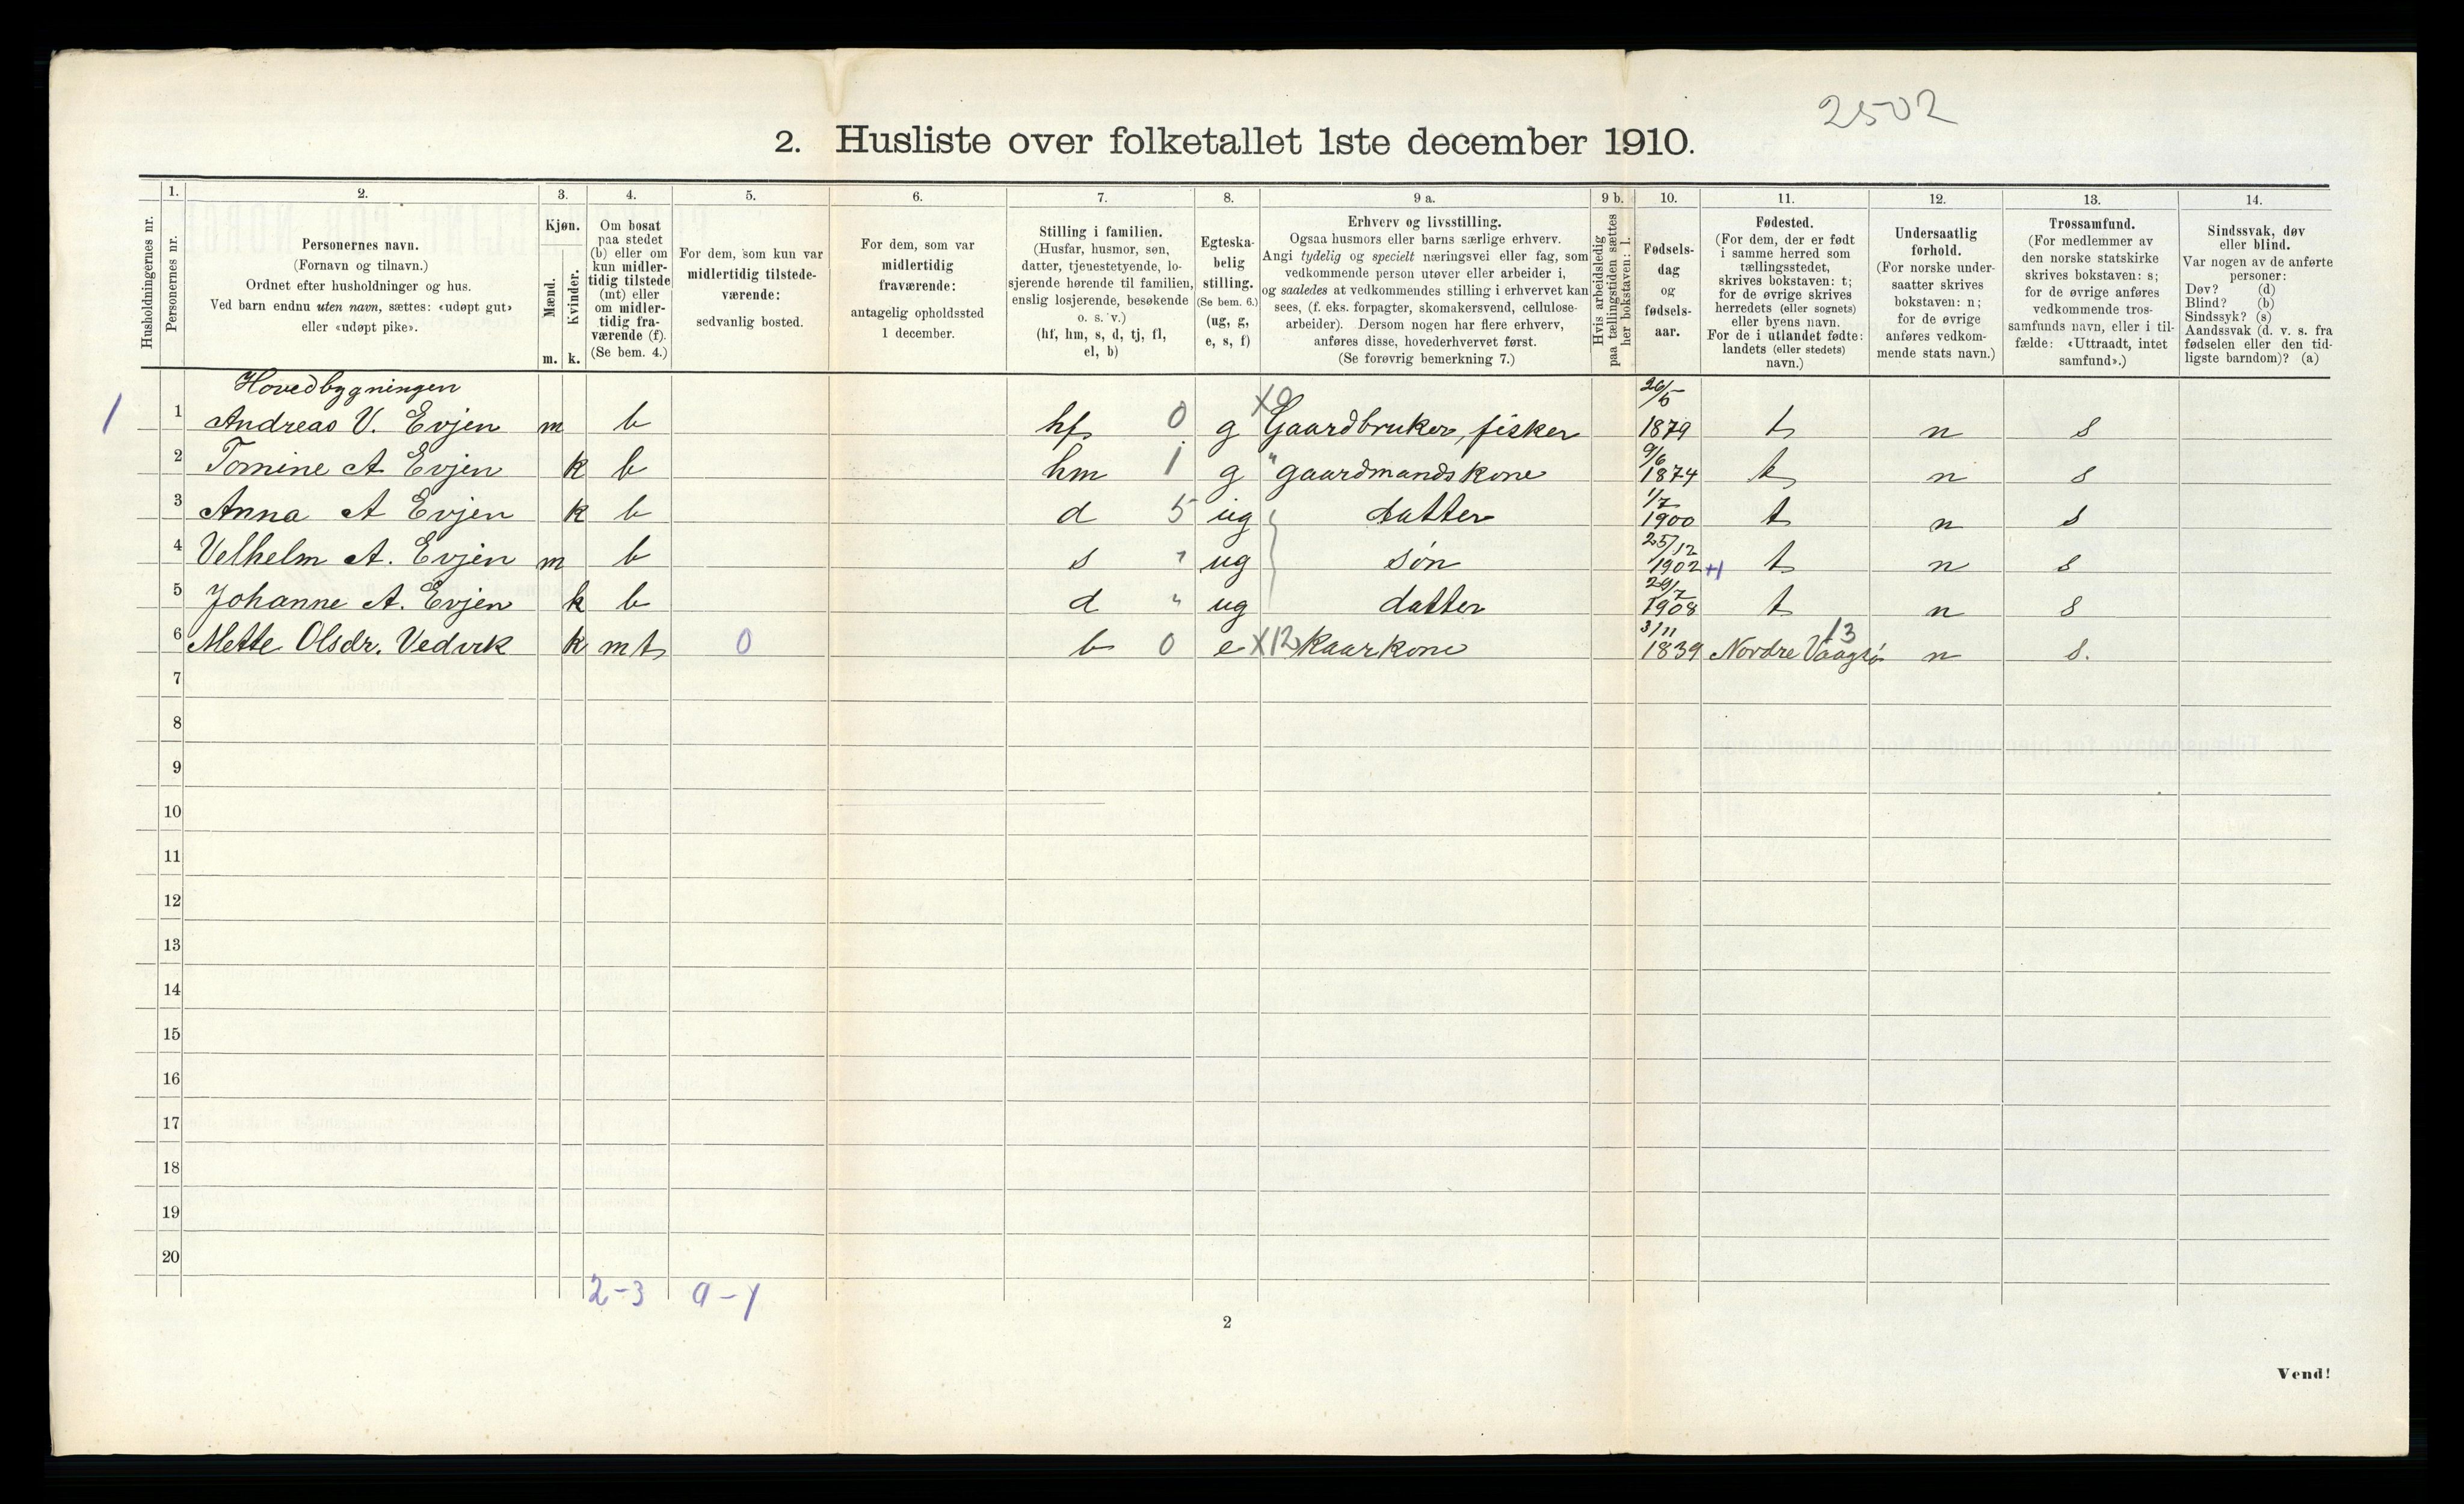 2502
2. Husliste over folketallet 1ste december 1910.
Husholdningernes nr.
1.
Personernes nr.
2.
Personernes navn.
(Fornavn og tilnavn.)
Ordnet efter husholdninger og hus.
Ved barn endnu uten navn, sættes: «udøpt gut»
eller «udøpt pike».
3.
Kjøn.
Mænd.
Kvinder.
m. k.
4.
Om bosat
paa stedet
(b) eller om
kun midler-
tidig tilstede
(mt) eller
om midler-
tidig fra-
værende (f).
(Se bem. 4.)
5.
For dem, som kun var
midlertidig tilstede-
værende:
sedvanlig bosted.
6.
For dem, som var
midlertidig
fraværende:
antagelig opholdssted
1 december.
7.
Stilling i familien.
(Husfar, husmor, søn,
datter, tjenestetyende, lo-
sjerende hørende til familien,
enslig losjerende, besøkende
o. s. v.)
(hf, hm, s, d, tj, fl,
el, b)
8.
Egteska-
belig
stilling.
(Se bem. 6.)
(ug, g,
e, s, f)
9 a.
Erhverv og livsstilling.
Ogsaa husmors eller barns særlige erhverv.
Angi tydelig og specielt næringsvei eller fag, som
vedkommende person utøver eller arbeider i,
og saaledes at vedkommendes stilling i erhvervet kan
sees, (f. eks. forpagter, skomakersvend, cellulose-
arbeider). Dersom nogen har flere erhverv,
anføres disse, hovederhvervet først.
(Se forøvrig bemerkning 7.)
9 b.
Hvis arbeidsledig
paa tællingstiden sættes
her bokstaven: l.
10.
Fødsels-
dag
og
fødsels-
aar.
11.
Fødested.
(For dem, der er født
i samme herred som
tællingsstedet,
skrives bokstaven: t;
for de øvrige skrives
herredets (eller sognets)
eller byens navn.
For de i utlandet fødte:
landets (eller stedets)
navn.)
12.
Undersaatlig
forhold.
(For norske under-
saatter skrives
bokstaven: n;
for de øvrige
anføres vedkom-
mende stats navn.)
13.
Trossamfund.
(For medlemmer av
den norske statskirke
skrives bokstaven: s;
for de øvrige anføres
vedkommende tros-
samfunds navn, eller i til-
fælde: «Uttraadt, intet
samfund».)
14.
Sindssvak, døv
eller blind.
Var nogen av de anførte
personer:
Døv? (d)
Blind? (b)
Sindssyk? (s)
Aandssvak (d. v. s. fra
fødselen eller den tid-
ligste barndom)? (a)
Hovedbygningen
1 1 Andreas V. Evjen m b hf 0 g X0 Gaardbruker, fisker 26/5 1879 t n s
2 Tomine A Evjen k b hm 1 g " gaardmandskone 9/6 1874 t n s
3 Anna A Evjen k b d 5 ug datter 1/7 1900 t n s
4 Velhelm A. Evjen m b s " ug søn 25/12 1902 +1 t n s
5 Johanne A. Evjen k b d " ug datter 29/7 1908 t n s
6 Mette Olsdr. Vedvik k mt 0 b 0 e X12 Kaarkone 3/11 1839 Nordre Vaagsø 13 n s.
7
8
9
10
11
12
13
14
15
16
17
18
19
20
2-3 0-1
2
Vend!